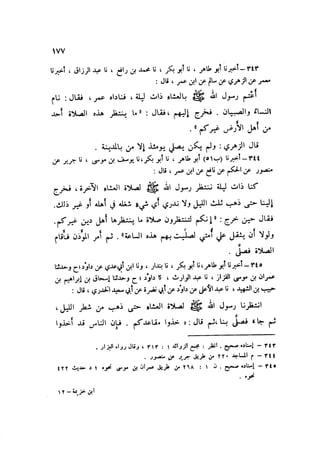 ١٧٧
٣٤٣ – أخبرنا أبو طاهر ، نا أبو بكر ، نا محمد بن رافع ، نا عبد الرزاق ، أخبرنا
معمر عن الزهري عن سالم عن ابن عمر ، قال :
أعتم رسول الله ﷺ بالعشاء ذات ليلة ، فناداه عمر ، فقال : نام
النساء والصبيان . فخرج إليهم ، فقال : « ما ينتظر هذه الصلاة أحد
من أهل الأرض غيركم » .
قال الزهري : ولم يكن يصلي يومئذ إلا من بالمدينة .
٣٤٤ – أخبرنا (ب٥١) أبو طاهر ، نا أبو بكر ، نا يوسف بن موسى ، نا جرير عن
منصور عن الحكم عن نافع عن ابن عمر ، قال :
كنا ذات ليلة ننتظر رسول الله ﷺ لصلاة العشاء الآخرة ، فخرج
إلينا حتى ذهب ثلث الليل ولا ندري أي شيء شغله في أهله أو غير ذلك .
فقال حين خرج : « إنكم لتنتظرون صلاة ما ينتظرها أهل دين غيركم .
ولولا أن يثقل على أمتي لصليت بهم هذه الساعة » . ثم أمر المؤذن فأقام
الصلاة فصلى .
٣٤٥ – أخبرنا أبو طاهر ، نا أبو بكر ، نا بندار ، ونا ابن أبي عدي عن داود ؛ ح وحدثنا
عمران بن موسى القزاز ، نا عبد الوارث ، نا داود ؛ ح وحدثنا إسحاق بن إبراهيم بن
حبيب بن الشهيد ، نا عبد الأعلى عن داود عن أبي نضرة عن أبي سعيد الخدري ، قال :
انتظرنا رسول الله ﷺ لصلاة العشاء حتى ذهب من شطر الليل ،
ثم جاء فصلى بنا ، ثم قال : « خذوا مقاعدكم . فإن الناس قد أخذوا
٣٤٣ – إسناده صحيح . انظر : مجمع الزوائد ١ : ٣١٣ ، وقال رواه البزار .
٣٤٤ – م المساجد ٢٢٠ من طريق جرير عن منصور .
٣٤٥ – إسناده صحيح . ن ١ : ٢٦٨ من طريق عمران بن موسى نحوه ؛ د حديث ٤٢٢
نحوه .
ابن خزيمة – ١٢